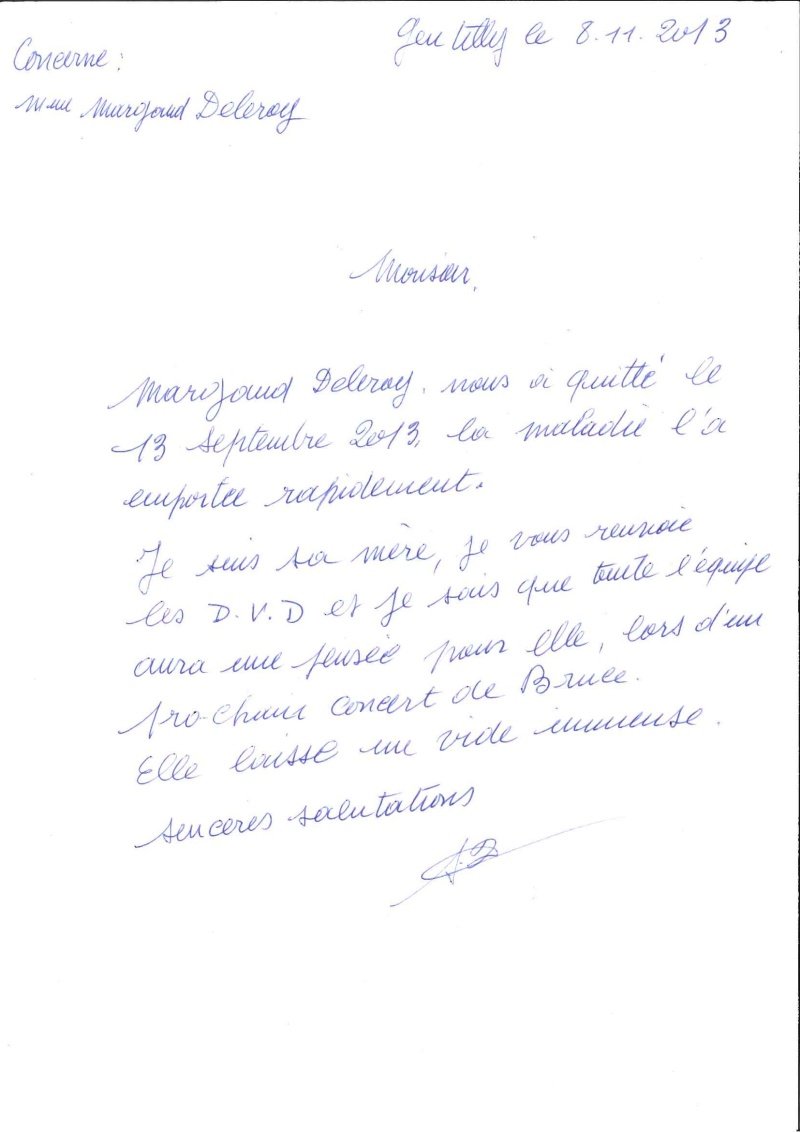 Gentilly le 8.11.2013
Concerne :
Mme Marjaud Deleroy
Monsieur,
Marjaud Deleroy, nous a quitté le
13 septembre 2013, la maladie l'a
emportée rapidement.
Je suis sa mère, je vous renvoie
les D.V.D et je sais que toute l'équipe
aura une pensée pour elle, lors d'un
prochain concert de Bruce.
Elle laisse un vide immense.
sincères salutations